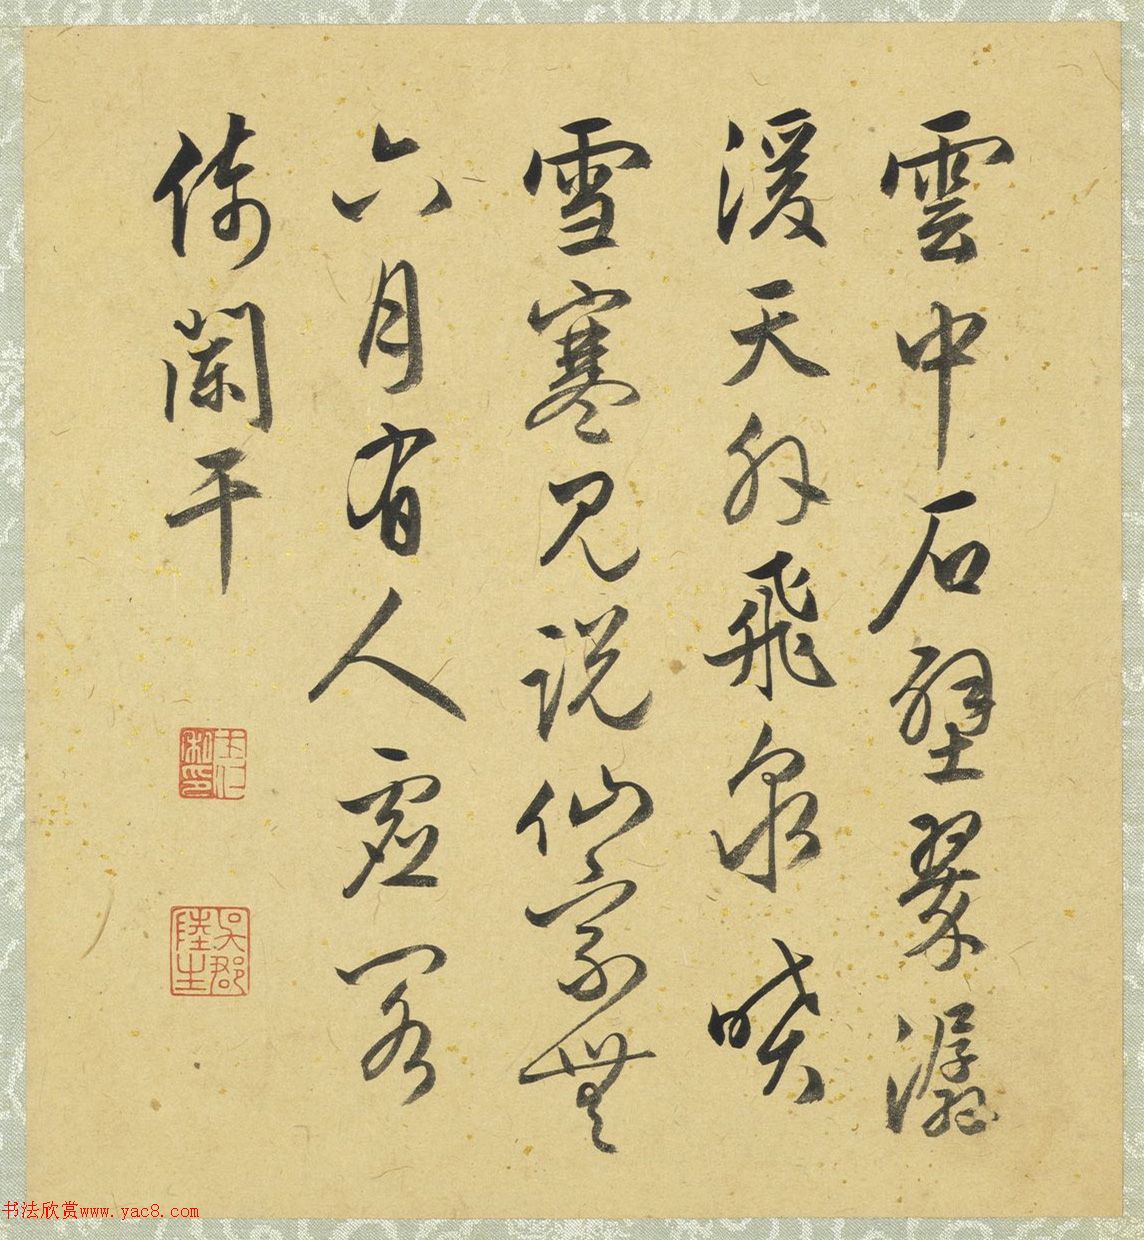 雲中石壁翠潺
湲天外飛泉噴
雪寒見說仙家無
六月有人虛閣
倚闌干
吳郡
陸生
书法欣赏www.yac8.com